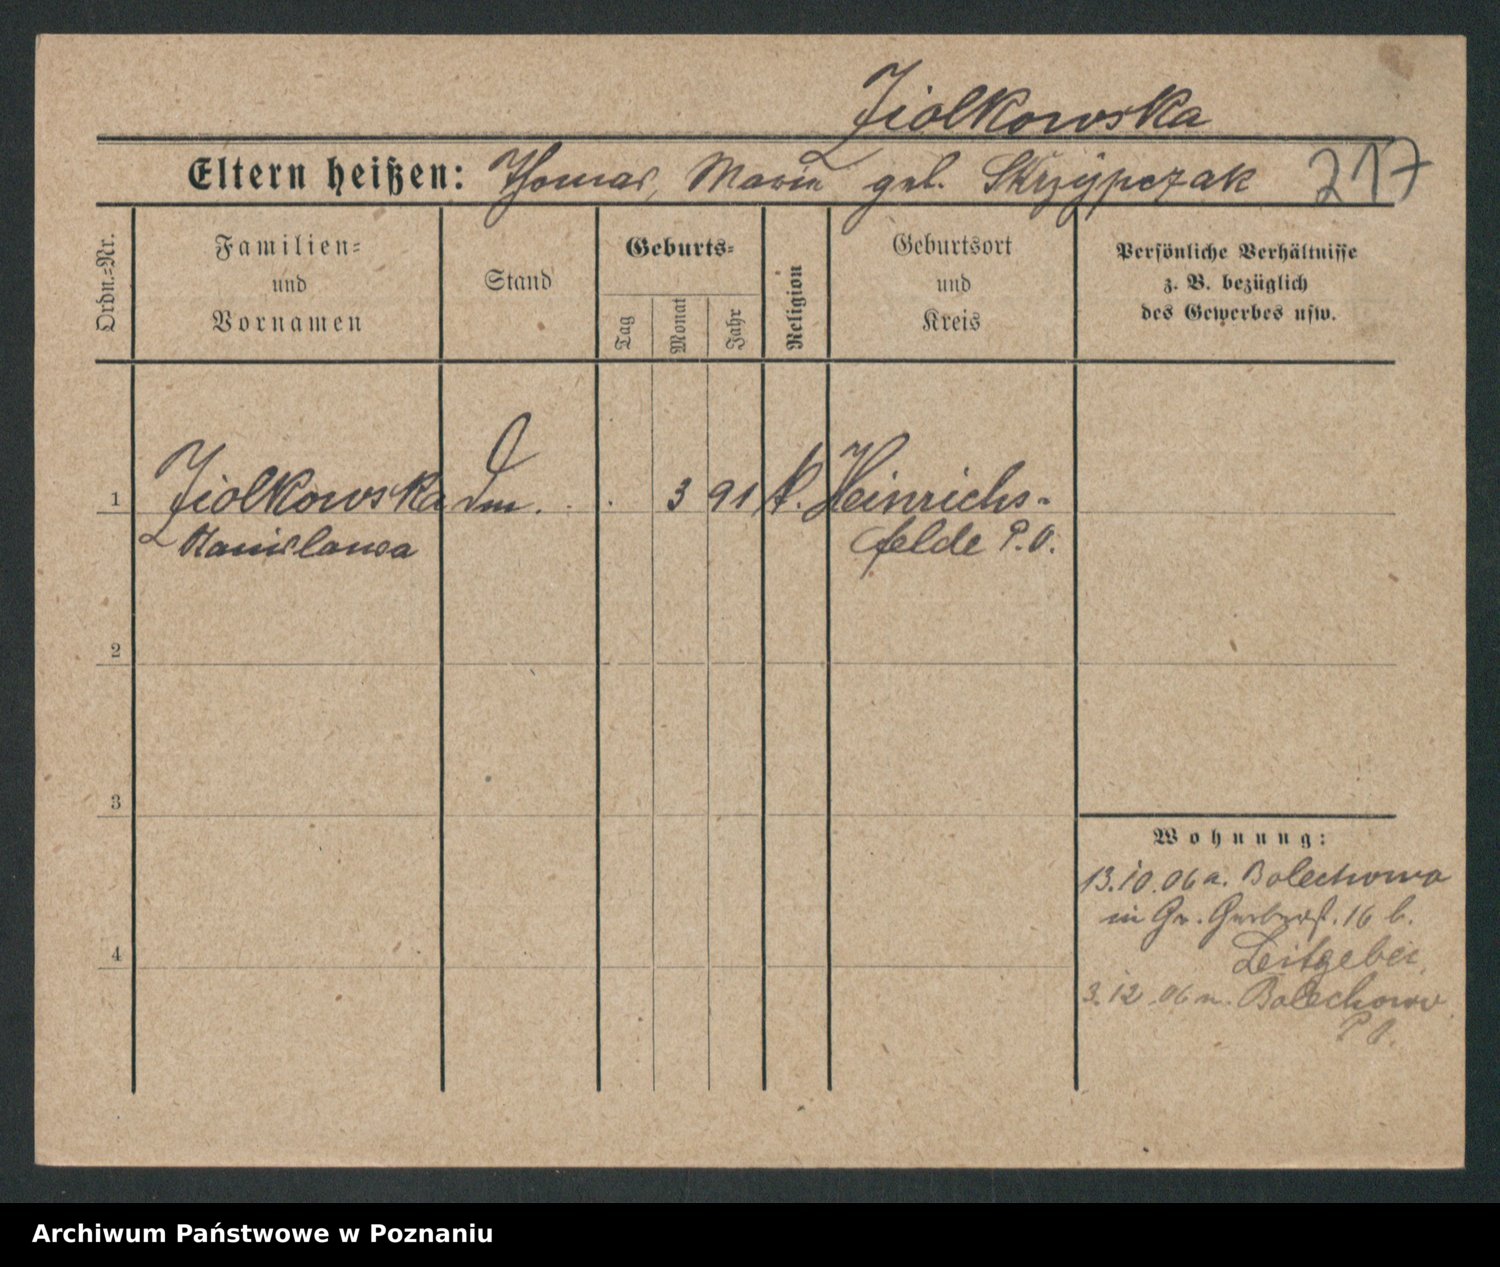 Ziolkowska
Eltern heißen: Thomas, Marie geb. Skrzypczak 217
Ordn.=Nr.
Familien=
und
Vornamen
Stand
Geburts=
Tag
Monat
Jahr
Religion
Geburtsort
und
Kreis
Persönliche Verhältnisse
z. B. bezüglich
des Gewerbes usw.
1 Ziolkowska 3 91 k. Heinrichs-
Stanislawa felde P. O.
2
3
4
Wohnung:
13.10.06 a. Bolechowo
in Gr. Gerberst. 16 b.
Leitgeber
3.12.06 n. Bolechowo
P. O.
Archiwum Państwowe w Poznaniu